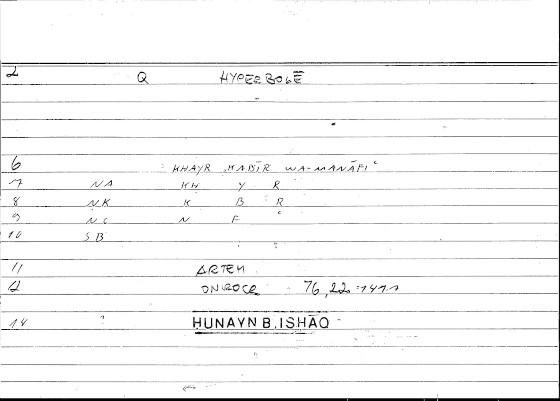 2 Q HYPERBOLĒ
6 KHAYR KABĪR WA-MANĀFIʿ
7 NA KH Y R
8 NK K B R
9 NC N F ʿ
10 SB
11 ARTEM
ONIROCR 76,22
14 HUNAYN B. ISHĀQ